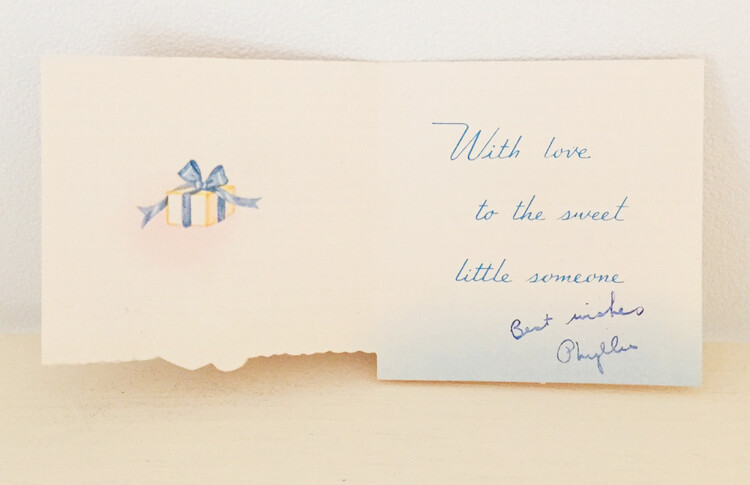 With love
to the sweet
little someone
Best wishes
Phyllis